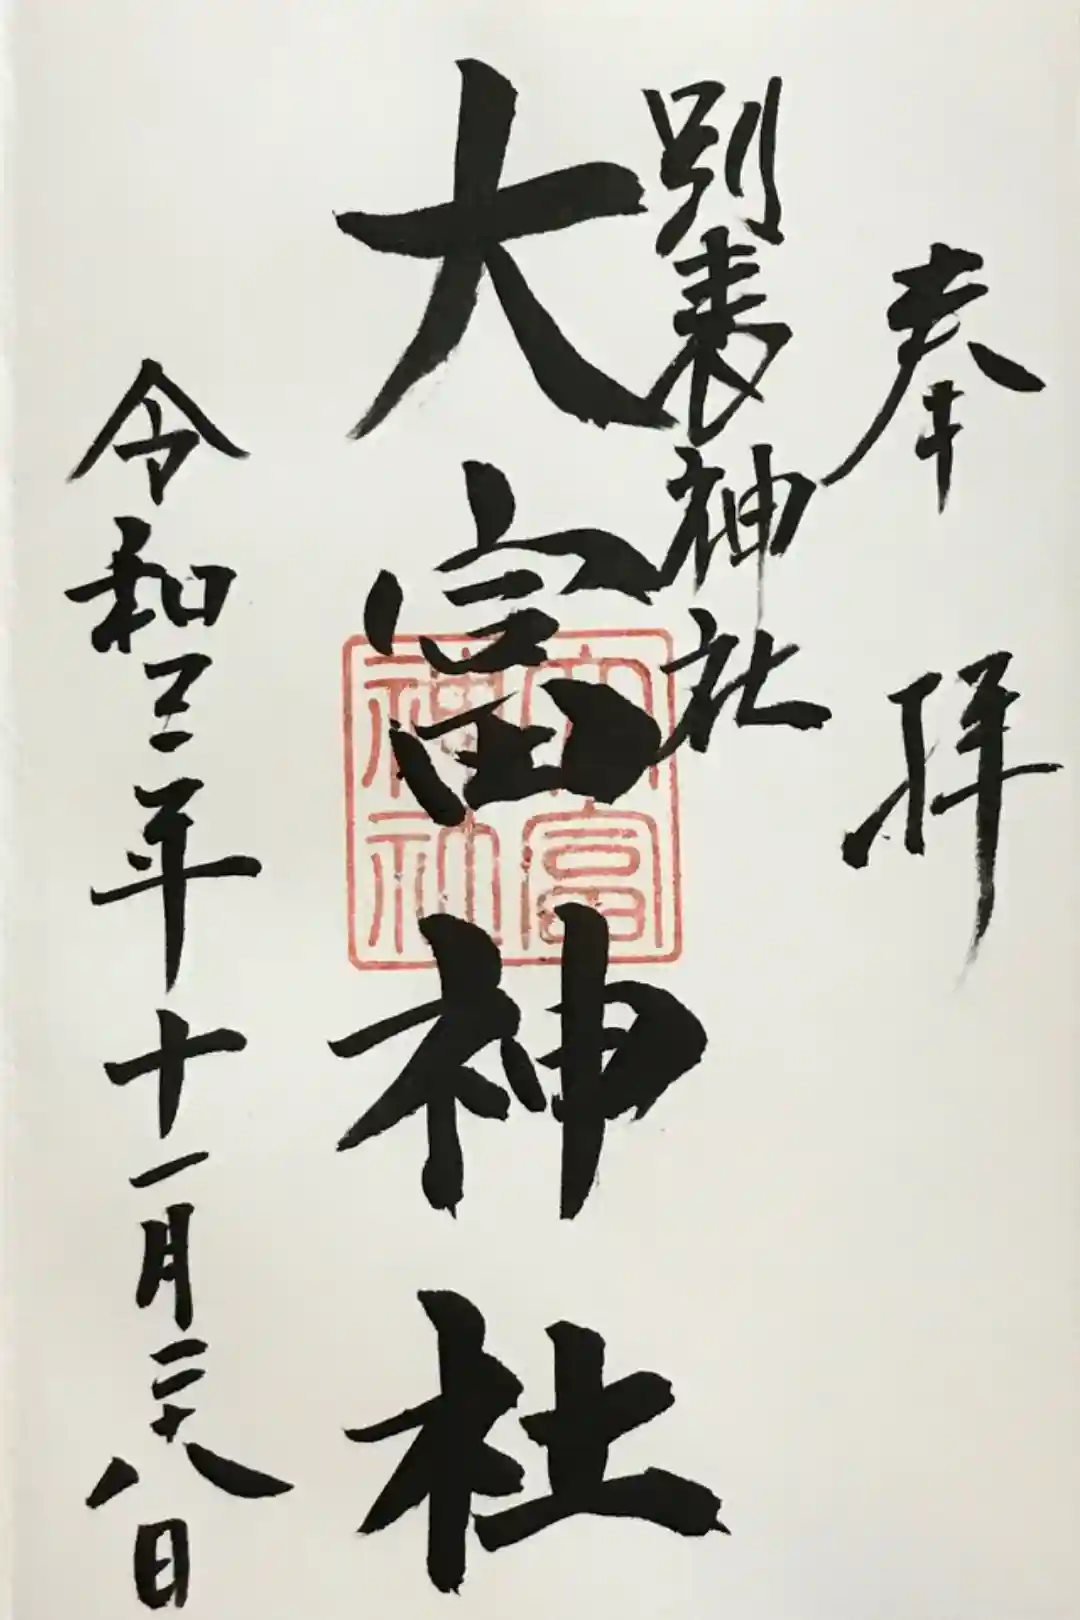 奉拝
別表神社
大富神社
令和三年十一月二十八日
大富神社